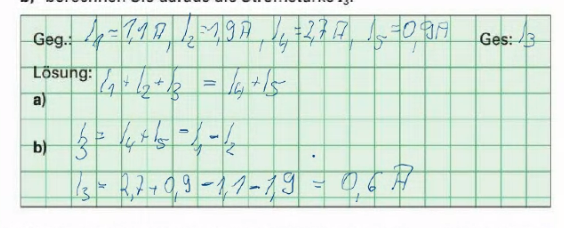 b) berechnen Sie daraus die Stromstärke I₃.
Geg.: I₁=1,1A, I₂=1,9A, I₄=2,7A, I₅=0,9A Ges: I₃
Lösung:
a) I₁+I₂+I₃ = I₄+I₅
b) I₃ = I₄+I₅-I₁-I₂
I₃ = 2,7+0,9-1,1-1,9 = 0,6 A